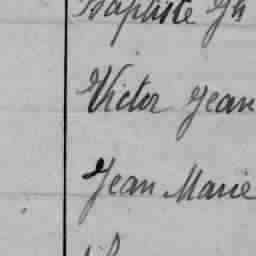 Baptiste
Victor Jean
Jean Marie